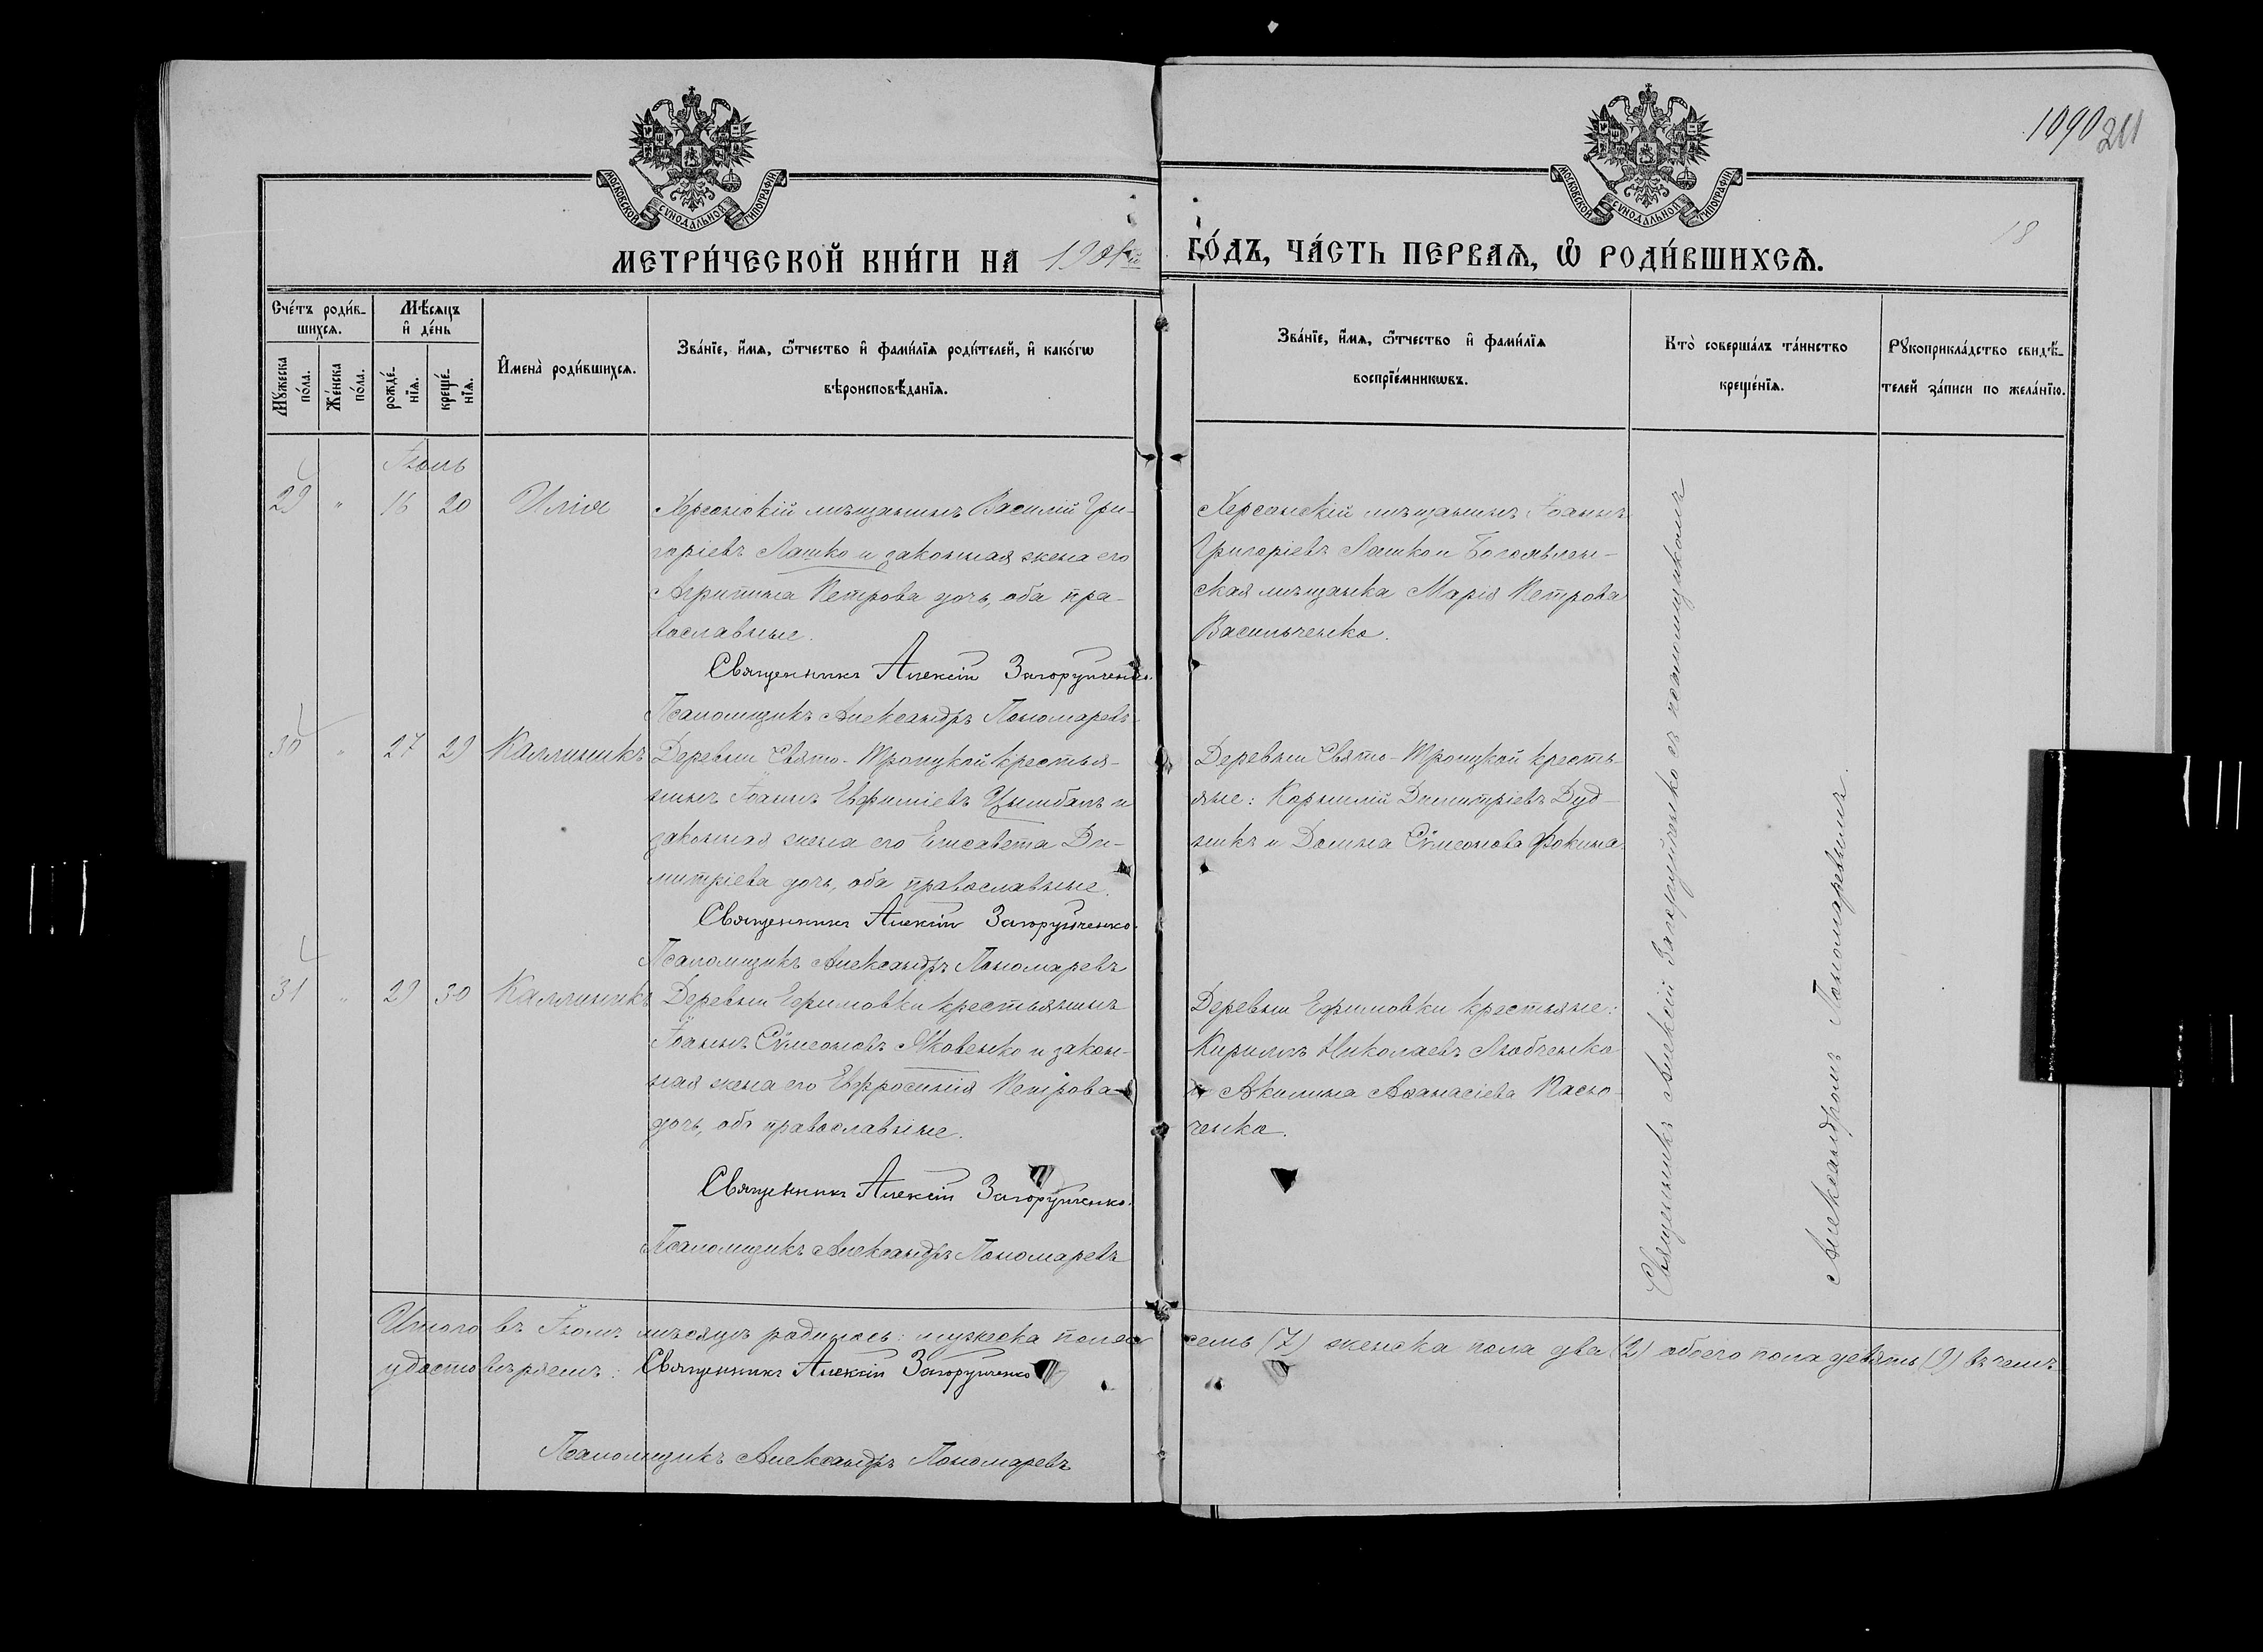 1090 211
18
МОСКОВСКОЙ СѴНОДАЛЬНОЙ ТИПОГРАФІИ
МОСКОВСКОЙ СѴНОДАЛЬНОЙ ТИПОГРАФІИ
МЕТРИ́ЧЕСКОЙ КНИ́ГИ НА 1901й ГО́ДЪ, ЧА́СТЬ ПЕРВАѦ, Ѡ҆ РОДИ́ВШИХСѦ.
Сче́тъ роди́в-
шихсѧ.
Мꙋ́жеска
по́ла.
Же́нска
по́ла.
Мѣ́сѧцъ
и҆ де́нь
рожде́-
нїѧ.
креще́-
нїѧ.
И҆мена̀ роди́вшихсѧ.
Зва́нїе, и҆́мѧ, ѻ҆́тчество и҆ фами́лїѧ роди́телей, и҆ како́гѡ
вѣроисповѣ́данїѧ.
Зва́нїе, и҆́мѧ, ѻ҆́тчество и҆ фами́лїѧ
воспрїе́мникѡвъ.
Кто̀ соверша́лъ та́инство
креще́нїѧ.
Рꙋкоприкла́дство свидѣ́-
телей за́писи по жела́нїю.
Іюль
29 " 16 20 Илія
Херсонскій мѣщанинъ Василій Гри-
горіевъ Лашко и законная жена его
Агрипина Петрова дочь, оба пра-
вославные.
Священникъ Алексій Загоруйченко.
Псаломщикъ Александръ Пономаревъ
Херсонскій мѣщанинъ Іоаннъ
Григоріевъ Лашко и Богоявлен-
ская мѣщанка Марія Петрова
Васильченко.
30 " 27 29 Каллиникъ
Деревни Свято-Троицкой крестья-
нинъ Іоаннъ Евфиміевъ Цымбалъ и
законная жена его Елисавета Ди-
митріева дочь, оба православные.
Священникъ Алексій Загоруйченко.
Псаломщикъ Александръ Пономаревъ
Деревни Свято-Троицкой кресть-
яне: Корнилій Димитріевъ Дуд-
никъ и Домна Сѵмеонова Фокина.
31 " 29 30 Каллиникъ
Деревни Ефимовки крестьянинъ
Іоаннъ Сѵмеоновъ Яковенко и закон-
ная жена его Евфросинія Петрова
дочь, оба православные.
Священникъ Алексій Загоруйченко.
Псаломщикъ Александръ Пономаревъ
Деревни Ефимовки крестьяне:
Кириллъ Николаевъ Любченко
и Акилина Аѳанасіева Пасю-
ченко.
Священникъ Алексій Загоруйченко съ псаломщикомъ
Александромъ Пономаревымъ.
Итого въ Іюлѣ мѣсяцѣ родилось: мужеска пола семь (7) женска пола два (2) обоего пола девять (9) въ чемъ
удостовѣряемъ: Священникъ Алексій Загоруйченко
Псаломщикъ Александръ Пономаревъ